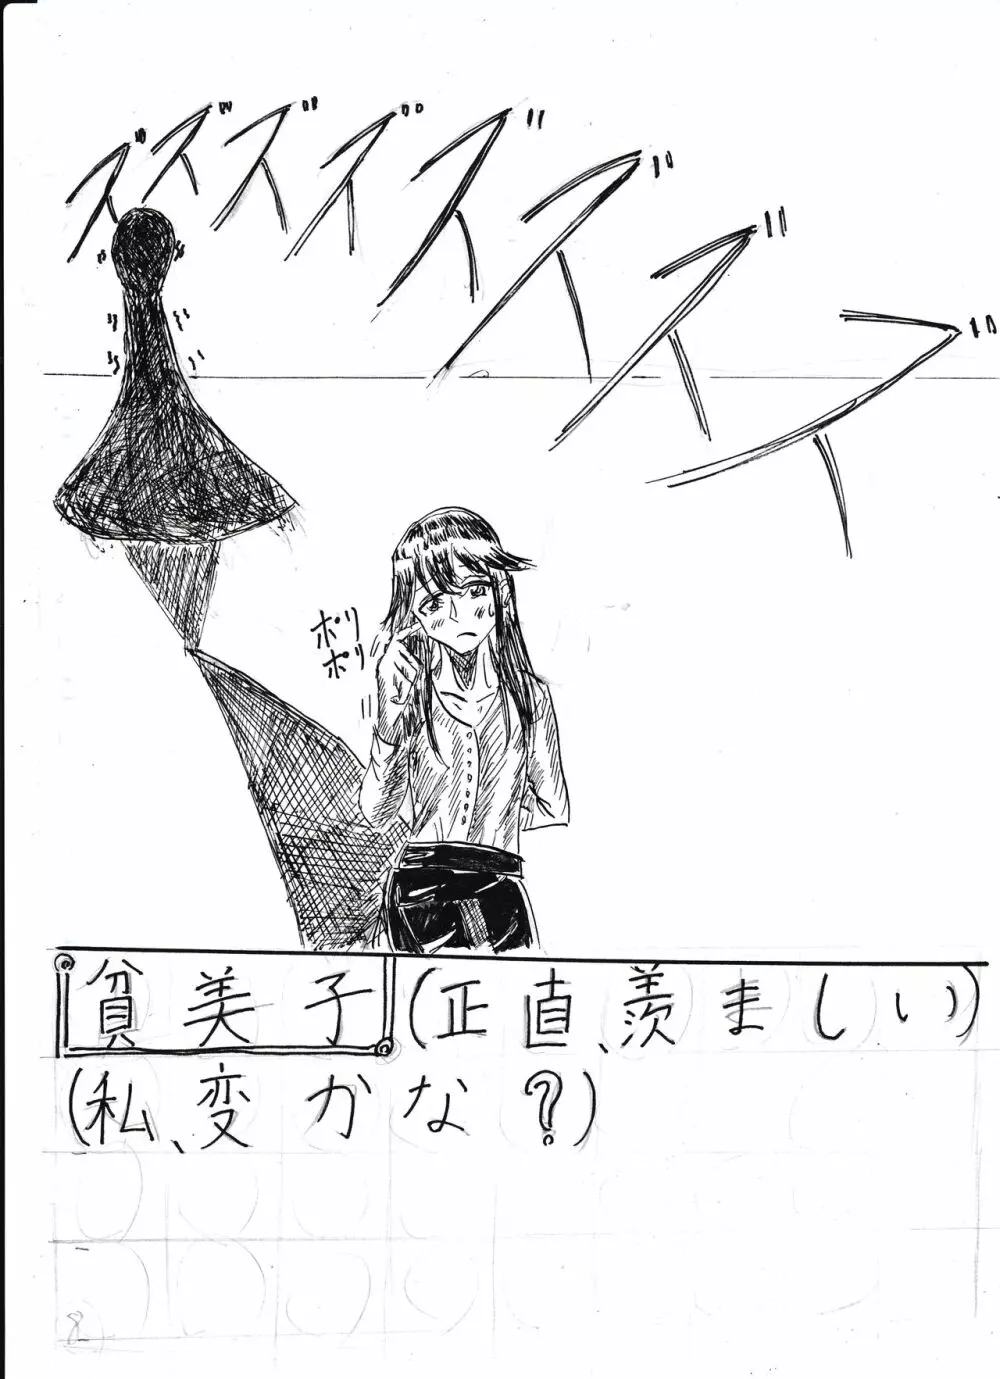 ズズズズズズズズ
ポリ
ポリ
貧美子(正直、羨ましい)
(私、変かな?)
8